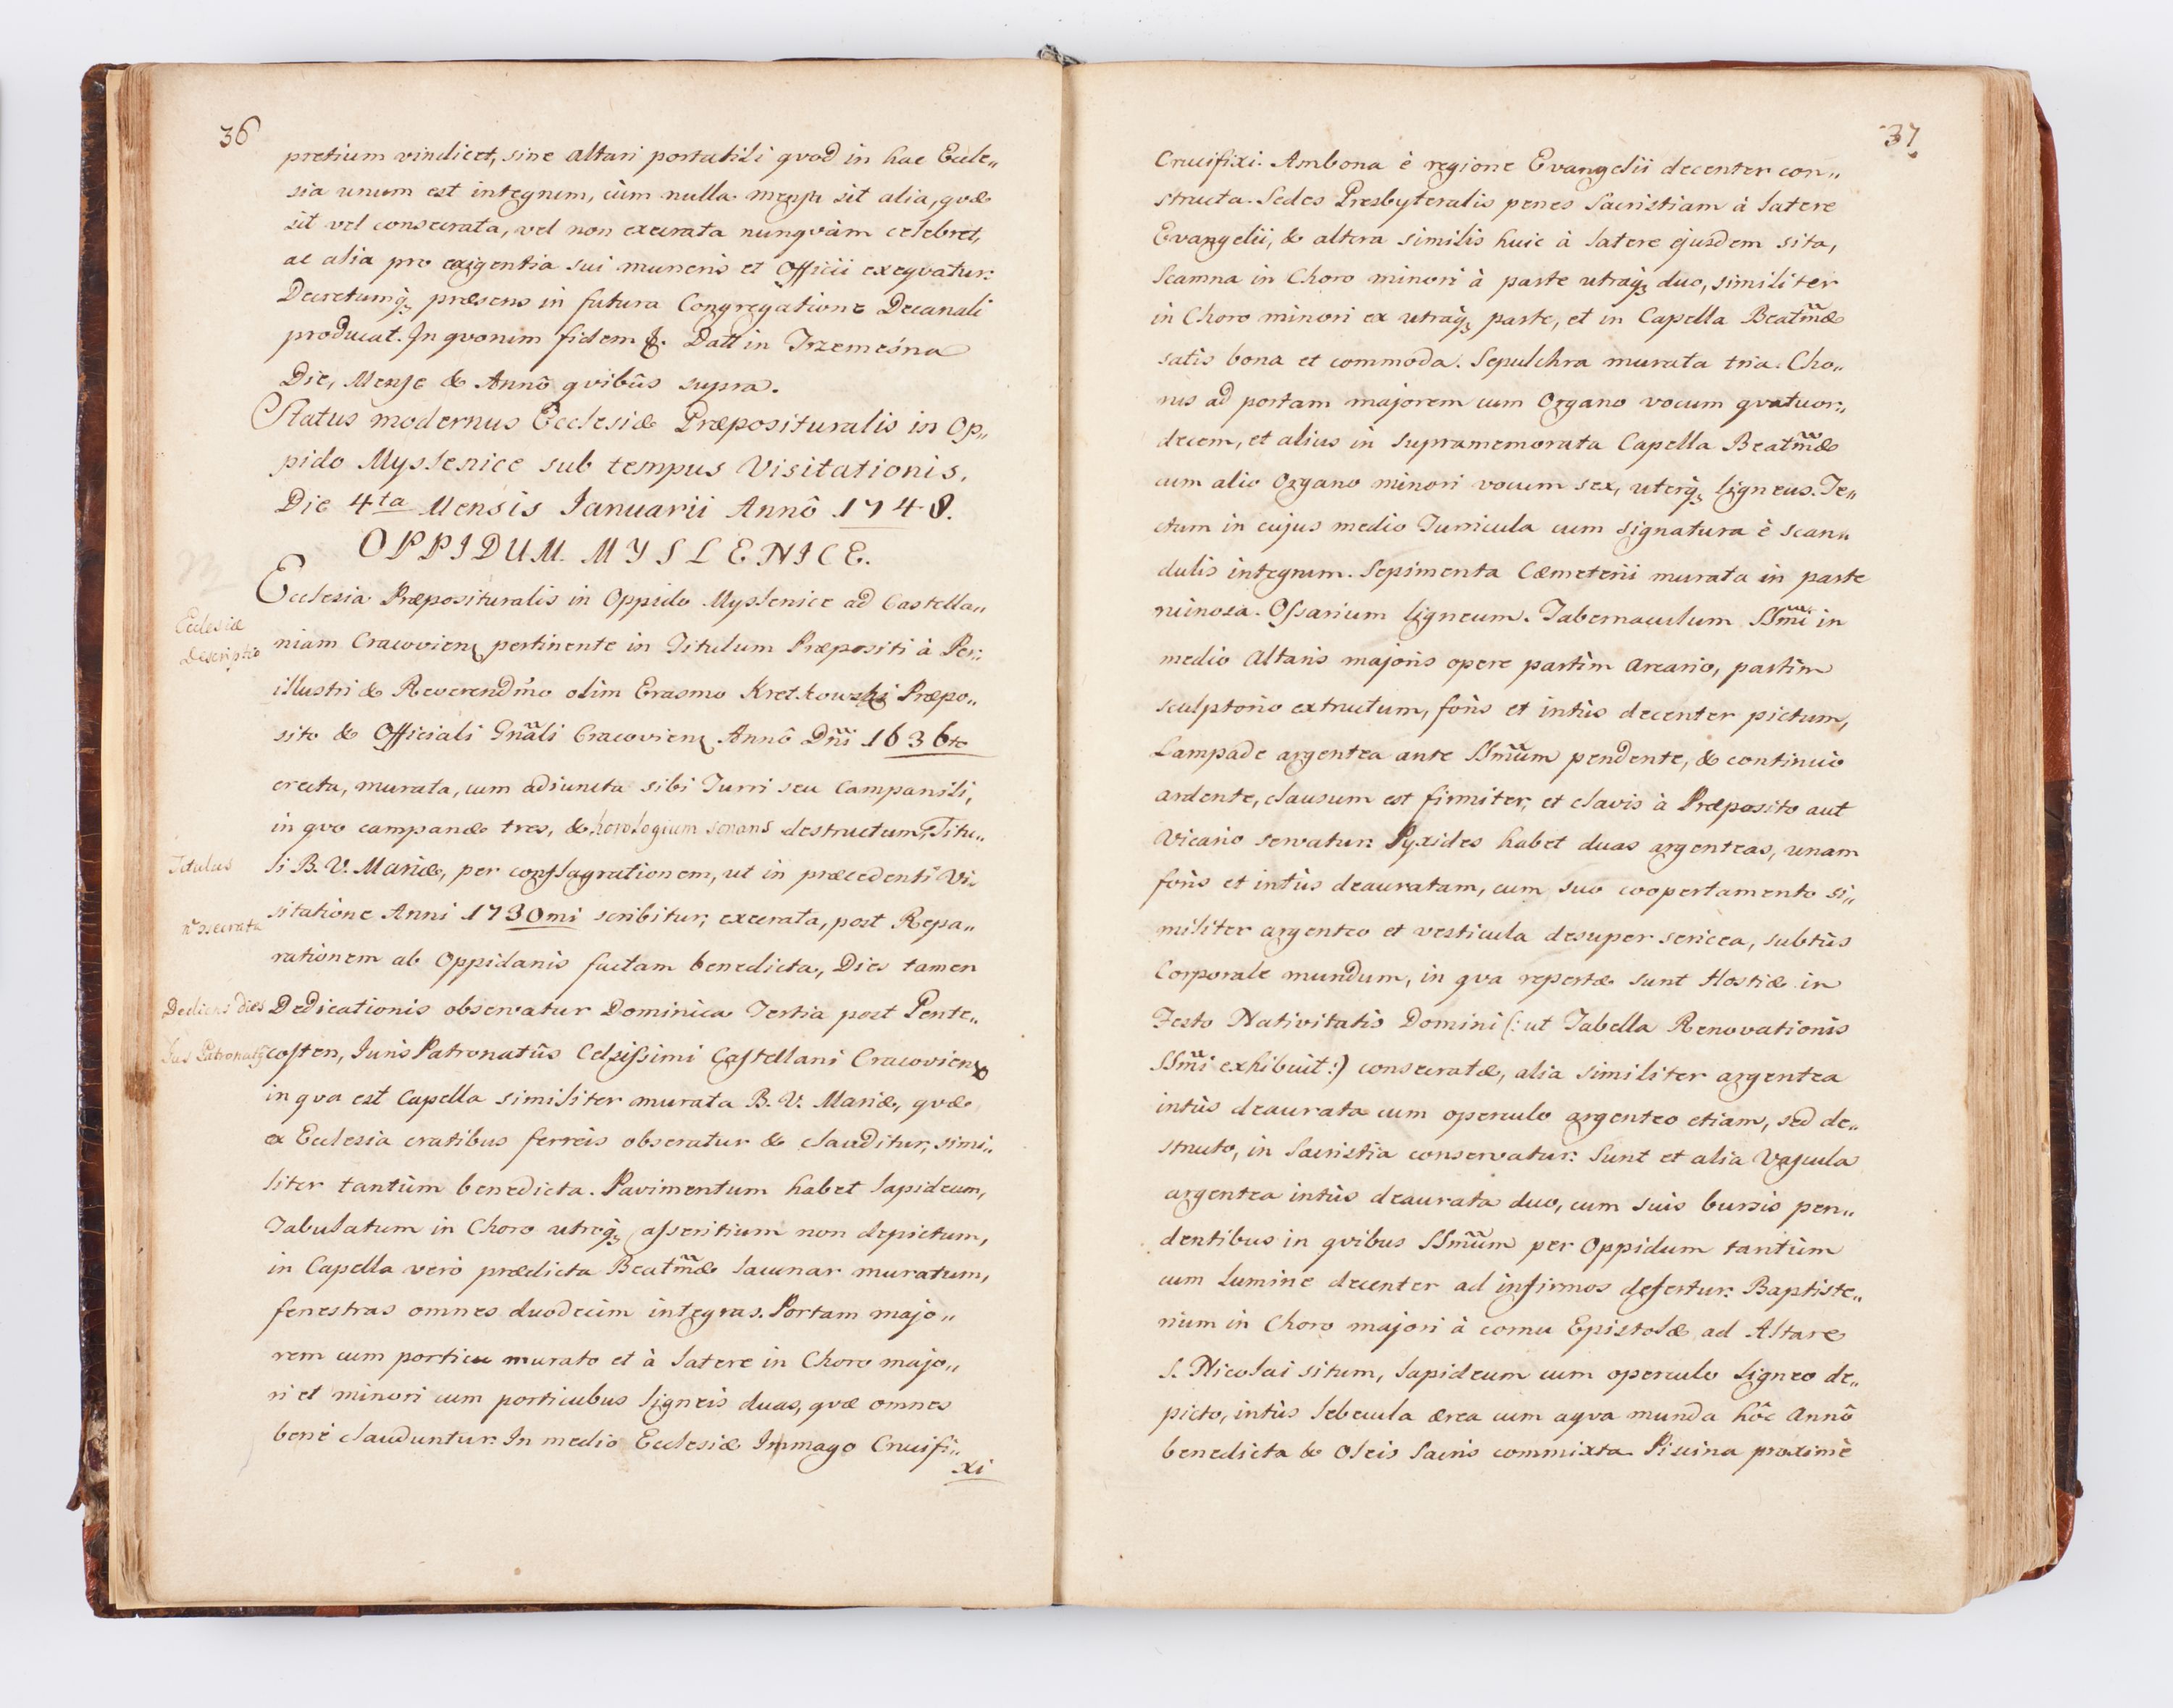 36
pretium vindicet, sine Altari portatili qvod in hac Eccle„
sia unum est integrum, cùm nulla mensa sit alia, qvæ
sit vel consecrata, vel non execrata nunqvàm celebret,
ac alia pro exigentia sui muneris et Officii exeqvatur:
Decretumq̀ꝫ præsens in futura Congregatione Decanali
producat. In qvorum fidem &. Datt in Trzemeśna
Die, Mense & Annô qvibûs supra.
Status modernus Ecclesiæ Præposituralis in Op„
pido Myslenice sub tempus Visitationis.
Die 4ta Mensis Ianuarii Annô 1748.
OPPIDUM MYSLENICE.
Ecclesiæ
Descriptio
Ecclesia Præposituralis in Oppido Myslenice ad Castella„
niam Cracovien pertinente in Titulum Præpositi à Per:
illustri & Reverendm̃o olim Erasmo Kretkowski Præpo„
sito & Officiali Gn̄ali Cracovien Annô Dn̄i 1636to
erecta, murata, cum adiuncta sibi Turri seu Campanili,
in qvo campanæ tres, & horologium sonans destructum, Titu„
Titulus
li B. V. Mariæ, per conflagrationem, ut in præcedenti Vi„
sitatione Anni 1730mi scribitur, execrata, post Repa„
rationem ab Oppidanis factam benedicta, Dies tamen
Dedicõnis dies
Dedicationis observatur Dominica Tertia post Pente„
Jus Patronatûs
costen, Iuris Patronatûs Celsissimi Castellani Cracovien
in qva est Capella similiter murata B. V. Mariæ, qvæ
ex Ecclesia cratibus ferreis obseratur & clauditur, simi„
liter tantùm benedicta. Pavimentum habet lapideum,
Tabulatum in Choro utroq̀ꝫ asseritium non depictum,
in Capella verò prædicta Beatm̃æ lacunar muratum,
fenestras omnes duodecim integras. Portam majo„
rem cum porticu murato et à latere in Choro majo„
ri et minori cum porticubus ligneis duas, qvæ omnes
benè clauduntur. In medio Ecclesiæ Immago Crucifi„
xi
37
Crucifixi. Ambona è regione Evangelii decenter con„
structa. Sedes Presbyteralis penes Sacristiam à latere
Evangelii, & altera similis huic à latere ejusdem sita,
Scamna in Choro minori à parte utraq̀ꝫ duo, similiter
in Choro minori ex utraq̀ꝫ parte, et in Capella Beatm̃æ
satis bona et commoda. Sepulchra murata tria. Cho„
rus ad portam majorem cum Organo vocum qvatuor„
decem, et alius in supramemorata Capella Beatm̃æ
cum alio Organo minori vocum sex, uterq̀ꝫ ligneus. Te„
ctum in cujus medio Turricula cum signatura è scan„
dulis integrum. Sepimenta Cæmeterii murata in parte
ruinosa. Ossarium ligneum. Tabernaculum SSm̃i in
medio Altaris majoris opere partìm arcario, partìm
sculptorio extructum, foris et intùs decenter pictum,
Lampade argentea ante SSm̃um pendente, & continuò
ardente, clausum est firmiter, et clavis à Præposito aut
Vicario servatur: Pyxides habet duas argenteas, unam
foris et intùs deauratam, cum suo coopertamento si„
militer argenteo et vesticula desuper sericea, subtùs
Corporale mundum, in qva repertæ sunt Hostiæ in
Festo Nativitatis Domini (: ut Tabella Renovationis
SSm̃i exhibuit :) consecratæ, alia similiter argentea
intùs deaurata cum operculo argenteo etiam, sed de„
structo, in Sacristia conservatur: Sunt et alia Vascula
argentea intùs deaurata duo, cum suis bursis pen„
dentibus in qvibus SSm̃um per Oppidum tantùm
cum lumine decenter ad infirmos defertur: Baptiste„
rium in Choro majori à cornu Epistolæ ad Altare
S. Nicolai situm, lapideum cum operculo ligneo de„
picto, intùs lebecula ærea cum aqva munda hôc Annô
benedicta & Oleis Sacris commixta Piscina proximè